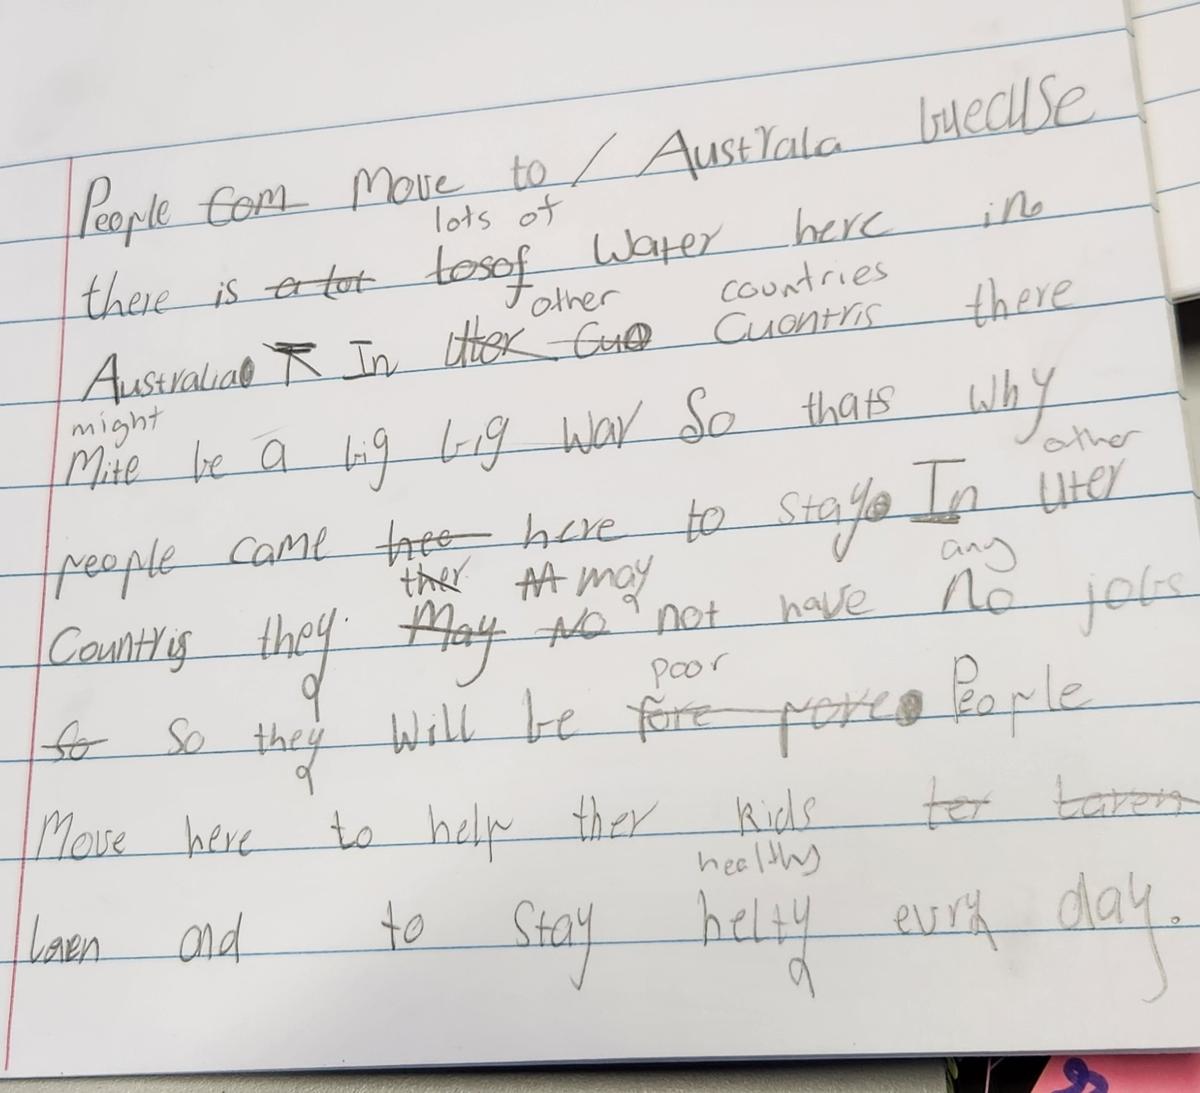 People com Move to / Australa buecuse
lots of
there is a lot tosof Water here in
other countries
Australia. In Utter Cuo Cuontris there
might
Mite be a big big war So thats why
other
people came hee here to stay. In Uter
ther M may any
Countris they May No not have No jobs
poor
so So they Will be fore pore. People
Move here to help ther kids ter taren
healthy
Laen and to Stay helty evry day.